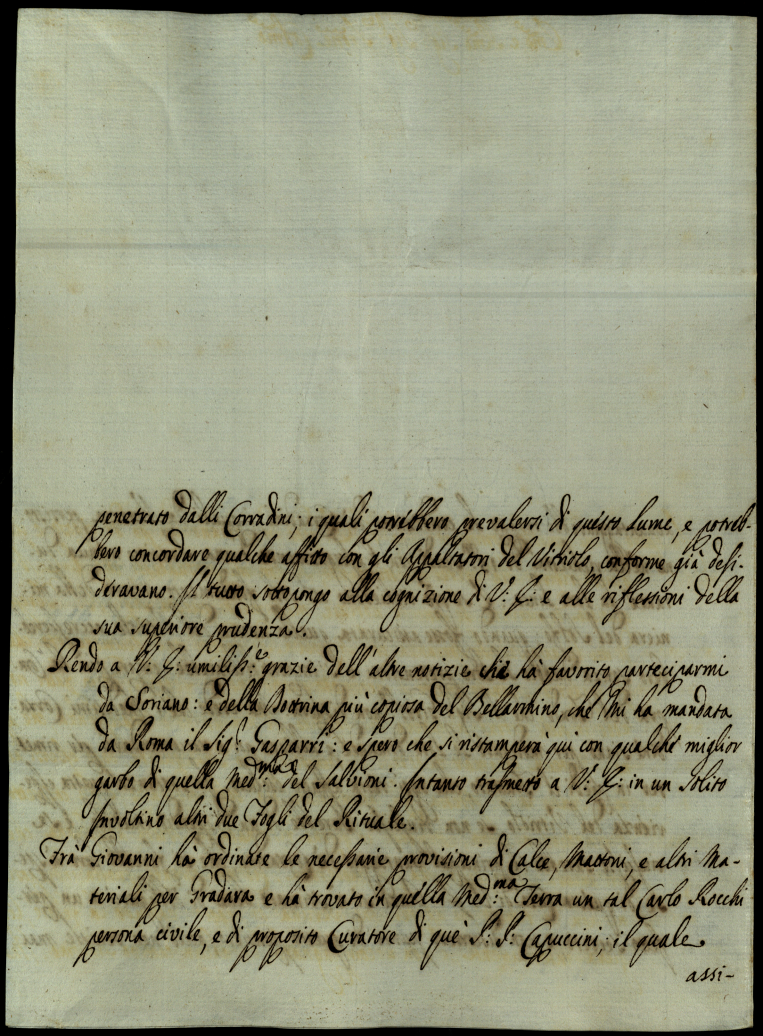 penetrato dalli Corradini; i quali potrebbero prevalersi di questo Lume, e potreb-
bero concordare qualche affitto con gli Appaltatori del Vitriolo, conforme già desi-
deravano. Il tutto sottopongo alla cognizione di V: E: e alle riflessioni della
sua superiore prudenza.
Rendo a V: E: umiliss:e grazie dell'altre notizie che hà favorito parteciparmi
da Soriano: e della Dottrina più copiosa del Bellarmino, che Mi ha mandata
da Roma il Sig:r Gasparri: e spero che si ristamperà quì con qualche miglior
garbo di quella med:ma del Salvioni. Intanto trasmetto a V: E: in un solito
Involtino altri due Fogli del Rituale.
Frà Giovanni hà ordinate le necessarie provisioni di Calce, Mattoni, e altri Ma-
teriali per Gradara e hà trovato in quella Med:ma Terra un tal Carlo Rocchi
persona civile, e di proposito Curatore di que' P: P: Capuccini; il quale
assi-